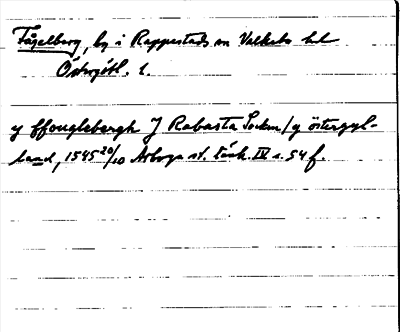 Fågelberg, by i Rappestads sn Valkebo hd
Östergötl. l.
y ffouglebergh J Rabasta Sockn / y östergyl-
land, 1545 20/10 Arboga st. tänk. IV s. 54 f.